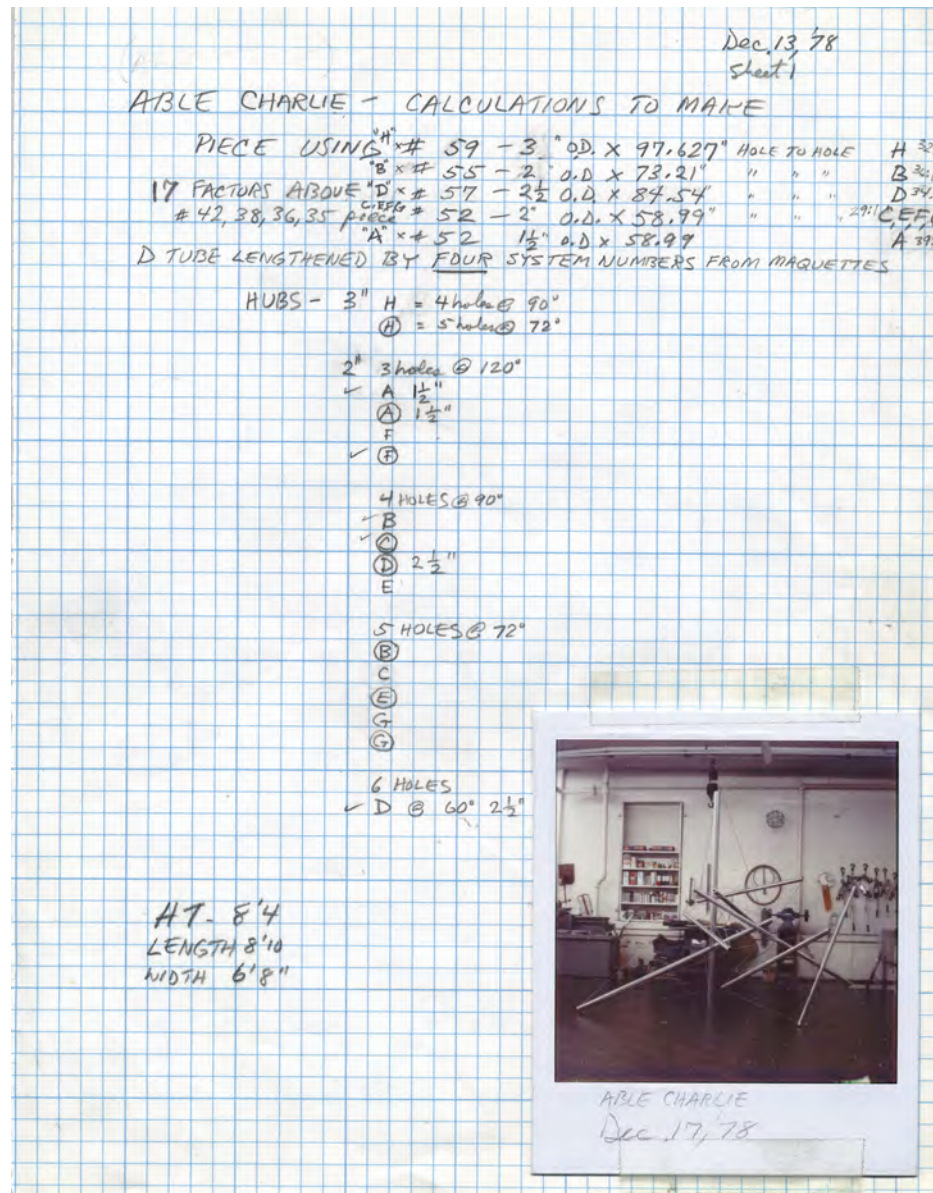 Dec. 13, '78
Sheet 1
ABLE CHARLIE - CALCULATIONS TO MAKE
PIECE USING "H" × # 59 - 3" O.D. × 97.627" HOLE TO HOLE H
"B" × # 55 - 2" O.D × 73.21" " " " B
17 FACTORS ABOVE "D" × # 57 - 2½ O.D. × 84.54" " " " D
# 42, 38, 36, 35 piece C,E,F,G # 52 - 2" O.D. × 58.99" " " 29:1 C,E,F,
"A" × # 52 1½" O.D × 58.99 A
D TUBE LENGTHENED BY FOUR SYSTEM NUMBERS FROM MAQUETTES
HUBS - 3" H = 4 holes @ 90°
Ⓗ = 5 holes @ 72°
2" 3 holes @ 120°
✓ A 1½"
Ⓐ 1½"
F
✓ Ⓕ
4 HOLES @ 90°
✓ B
✓ Ⓒ
Ⓓ 2½"
E
5 HOLES @ 72°
Ⓑ
C
Ⓔ
G
Ⓖ
6 HOLES
✓ D @ 60° 2½"
HT- 8'4
LENGTH 8'10
WIDTH 6'8"
ABLE CHARLIE
Dec. 17, '78